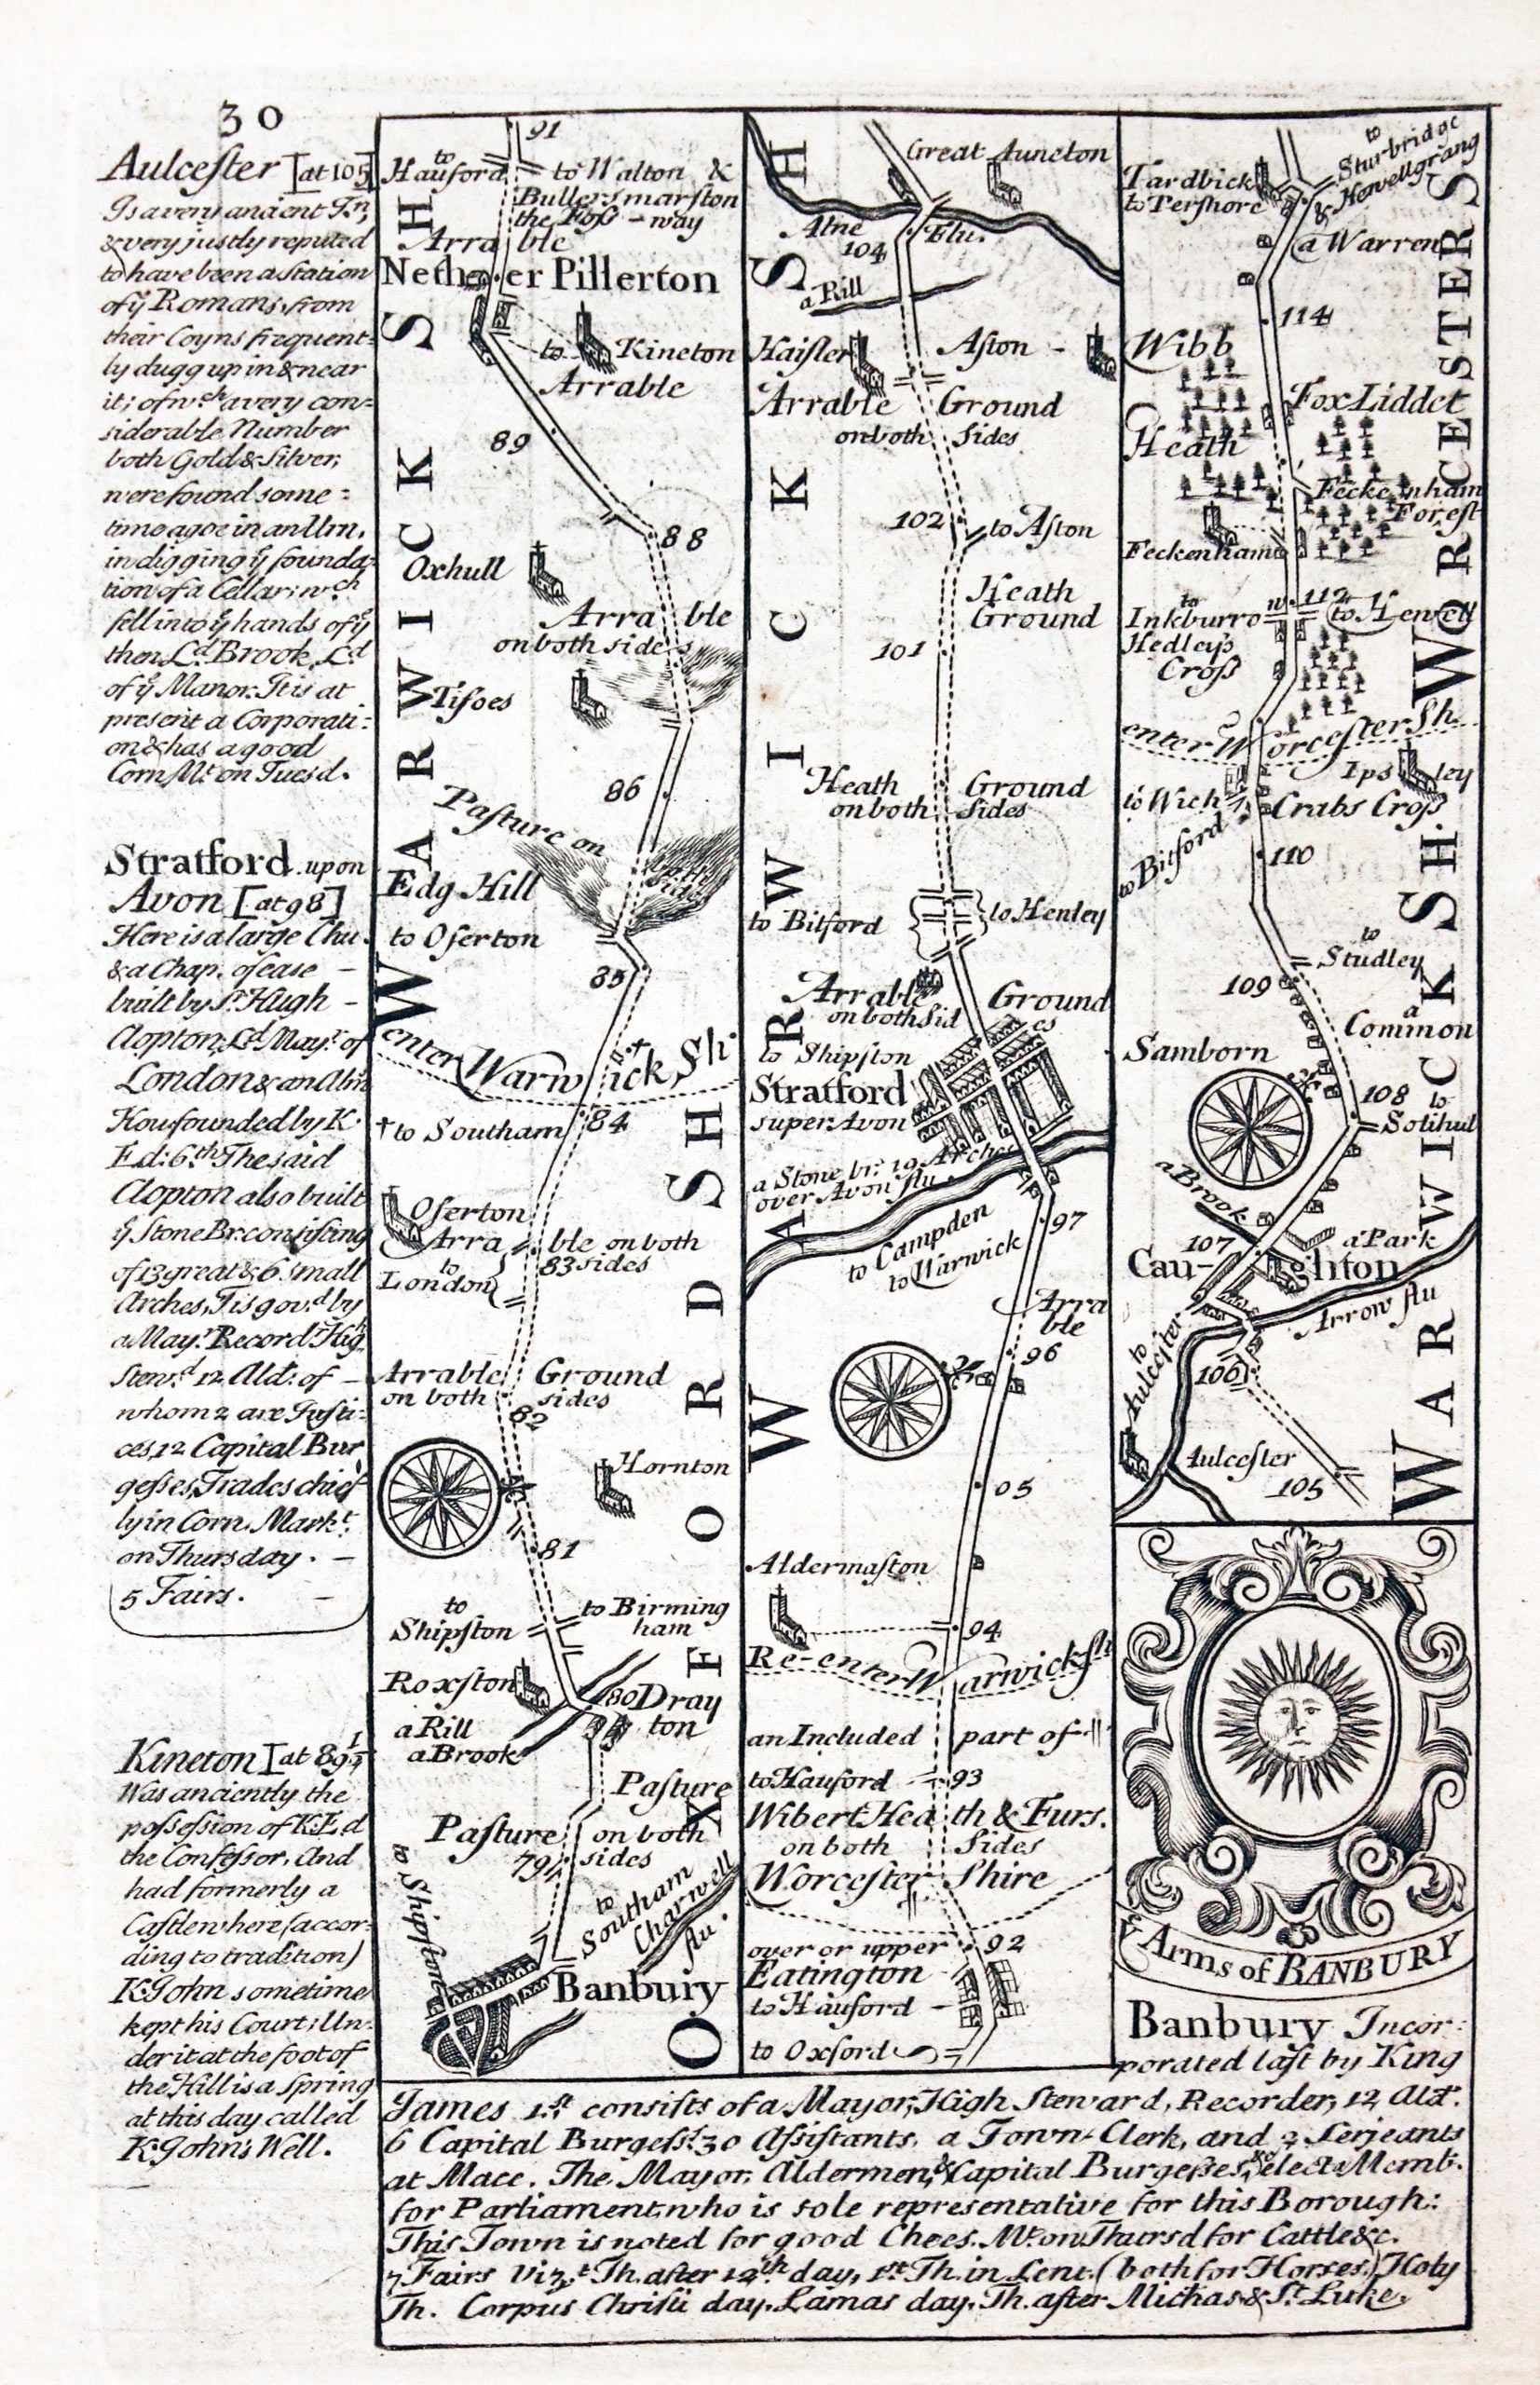 30
Aulcester [at 105]
Is a very ancient Tn,
& very justly reputed
to have been a Station
of ye Romans, from
their Coyns frequent-
ly dugg up in & near
it; of wch a very con-
siderable Number
both Gold & Silver,
were found some-
time agoe in an Urn,
in digging ye founda-
tion of a Cellar; wch
fell into ye hands of ye
then Ld. Brook, Ld
of ye Manor. It is at
present a Corporati-
on & has a good
Corn Mt on Tuesd.
Stratford upon
Avon [at 98]
Here is a large Chu.
& a Chap. of ease –
built by Sr. Hugh –
Clopton, Ld. Mayr. of
London & an Alm
Hou founded by K.
Ed: 6th. The said
Clopton also built
ye Stone Br. consisting
of 13 great & 6 small
Arches, Tis govd. by
a Mayr. Recordr. Hig
Stewd. 12 Ald: of –
whom 2 are Justi-
ces, 12 Capital Bur
gesses, Trades chief
ly in Corn. Markt.
on Thursday. –
5 Fairs. –
Kineton [at 89 1/2
Was anciently the
possession of K. Ed
the Confessor, And
had formerly a
Castle where (accor-
ding to tradition)
K. John sometime
kept his Court; Un-
der it at the foot of
the Hill is a Spring
at this day called
K. John's Well.
91
to
Hauford
to Walton &
Bullersmarston
the Foss-way
Arra ble
Nether Pillerton
to Kineton
Arrable
89
88
Oxhull
Arra ble
on both sides
Tisoes
86
Pasture on
both
sides
Edg Hill
to Oserton
85
enter Warwick Sh.
84
† to Southam
Oserton
Arra ble on both
83 sides
to
London
Arrable Ground
on both sides
82
Hornton
81
to
Shipston
to Birming
ham
Roxston
80
Dray
ton
a Rill
a Brook
Pasture
Pasture on both
79 sides
to Shipston
to
Southam
Charwell
flu.
Banbury
WARWICK SH
OXFORD SH
Great Auncton
Alne Flu.
104
a Rill
Haisler
Aston -
Arrable Ground
on both Sides
102
to Aston
Heath
Ground
101
Heath Ground
on both Sides
to Bitford
to Henley
Arrable Ground
on both Sid es
to Shipston
Stratford
super Avon
a Stone br: 19 Arches
over Avon flu
to Campden
to Warwick
97
Arra
ble
96
95
Aldermaston
94
Re-enter Warwick sh
an Included part of
to Hauford
93
Wibert Hea th & Furs.
on both Sides
Worcester Shire
over or upper
92
Eatington
to Hauford -
to Oxford
WARWICK SH
to
Sturbridge
& Hewellgrang
Tardbick
to Pershore
a Warren
114
Wibb
Heath
Fox Liddet
Feckenham
Forest
Feckenham
112
to
Inkburro
to Henfell
Hedley's
Cross
enter Worcester Sh.
Ipsley
to Wich
Crabs Cross
to Bitford
110
to
Studley
109
a
Common
Samborn
108
to
Solihul
a Brook
107
a Park
Caughton
Arrow flu
to
Aulcester
106
Aulcester
105
WORCESTERSH
WARWICK SH.
ye Arms of BANBURY
Banbury Incor-
porated last by King
James 1st. consists of a Mayor, High Steward, Recorder, 12 Ald.
6 Capital Burgesst. 30 Assistants, a Town-Clerk, and 2 Serjeants
at Mace. The Mayor, Aldermen, & Capital Burgesses, elect a Memb.
for Parliament, who is sole representative for this Borough:
This Town is noted for good Chees. Mt. on Thursd for Cattle &c.
7 Fairs vizt. Th. after 12th. day, 1st Th. in Lent. (both for Horses.) Holy
Th. Corpus Christi day. Lamas day. Th. after Michas & St. Luke.